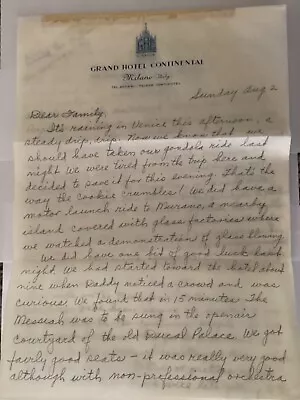 GRAND HOTEL CONTINENTAL
Milano - Italy
Sunday Aug 2
Dear Family,
It's raining in Venice this afternoon, a
steady drip, drip. Now we know that we
should have taken our gondola ride last
night we were tired from the trip here and
decided to save it for this evening. That's the
way the cookie crumbles! We did have a
motor launch ride to Murano, a nearby
island covered with glass factories where
we watched a demonstration of glass blowing.
We did have one bit of good luck last
night. We had started toward the hotel about
nine when Daddy noticed a crowd and was
curious. We found that in 15 minutes The
Messiah was to be sung in the openair
courtyard of the old Ducal Palace. We got
fairly good seats - it was really very good
although with non-professional orchestra